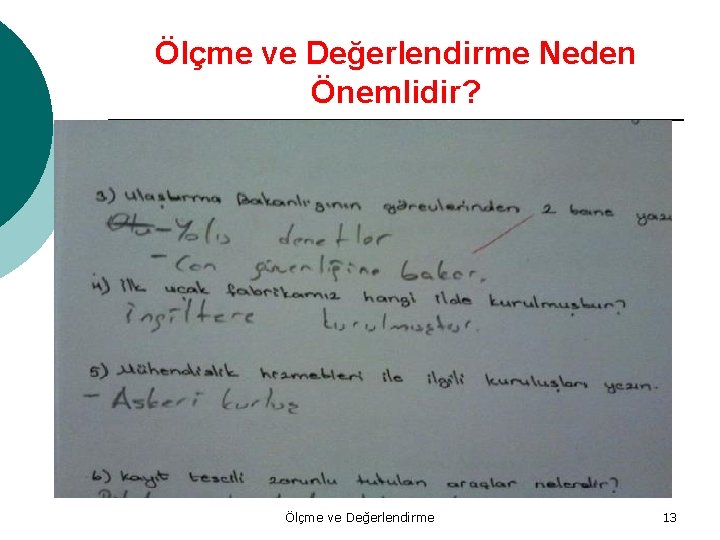 Ölçme ve Değerlendirme Neden
Önemlidir?
3) Ulaştırma Bakanlığının görevlerinden 2 tane yazı
- Yolis denetlor
- Can güvenliğine bakar.
4) İlk uçak fabrikamız hangi ilde kurulmuştur?
İngiltere kurulmuştur.
5) Mühendislik hizmetleri ile ilgili kuruluşları yazın.
- Askeri kurluş
6) Kayıt tescili zorunlu tutulan araçlar nelerdir?
Ölçme ve Değerlendirme
13